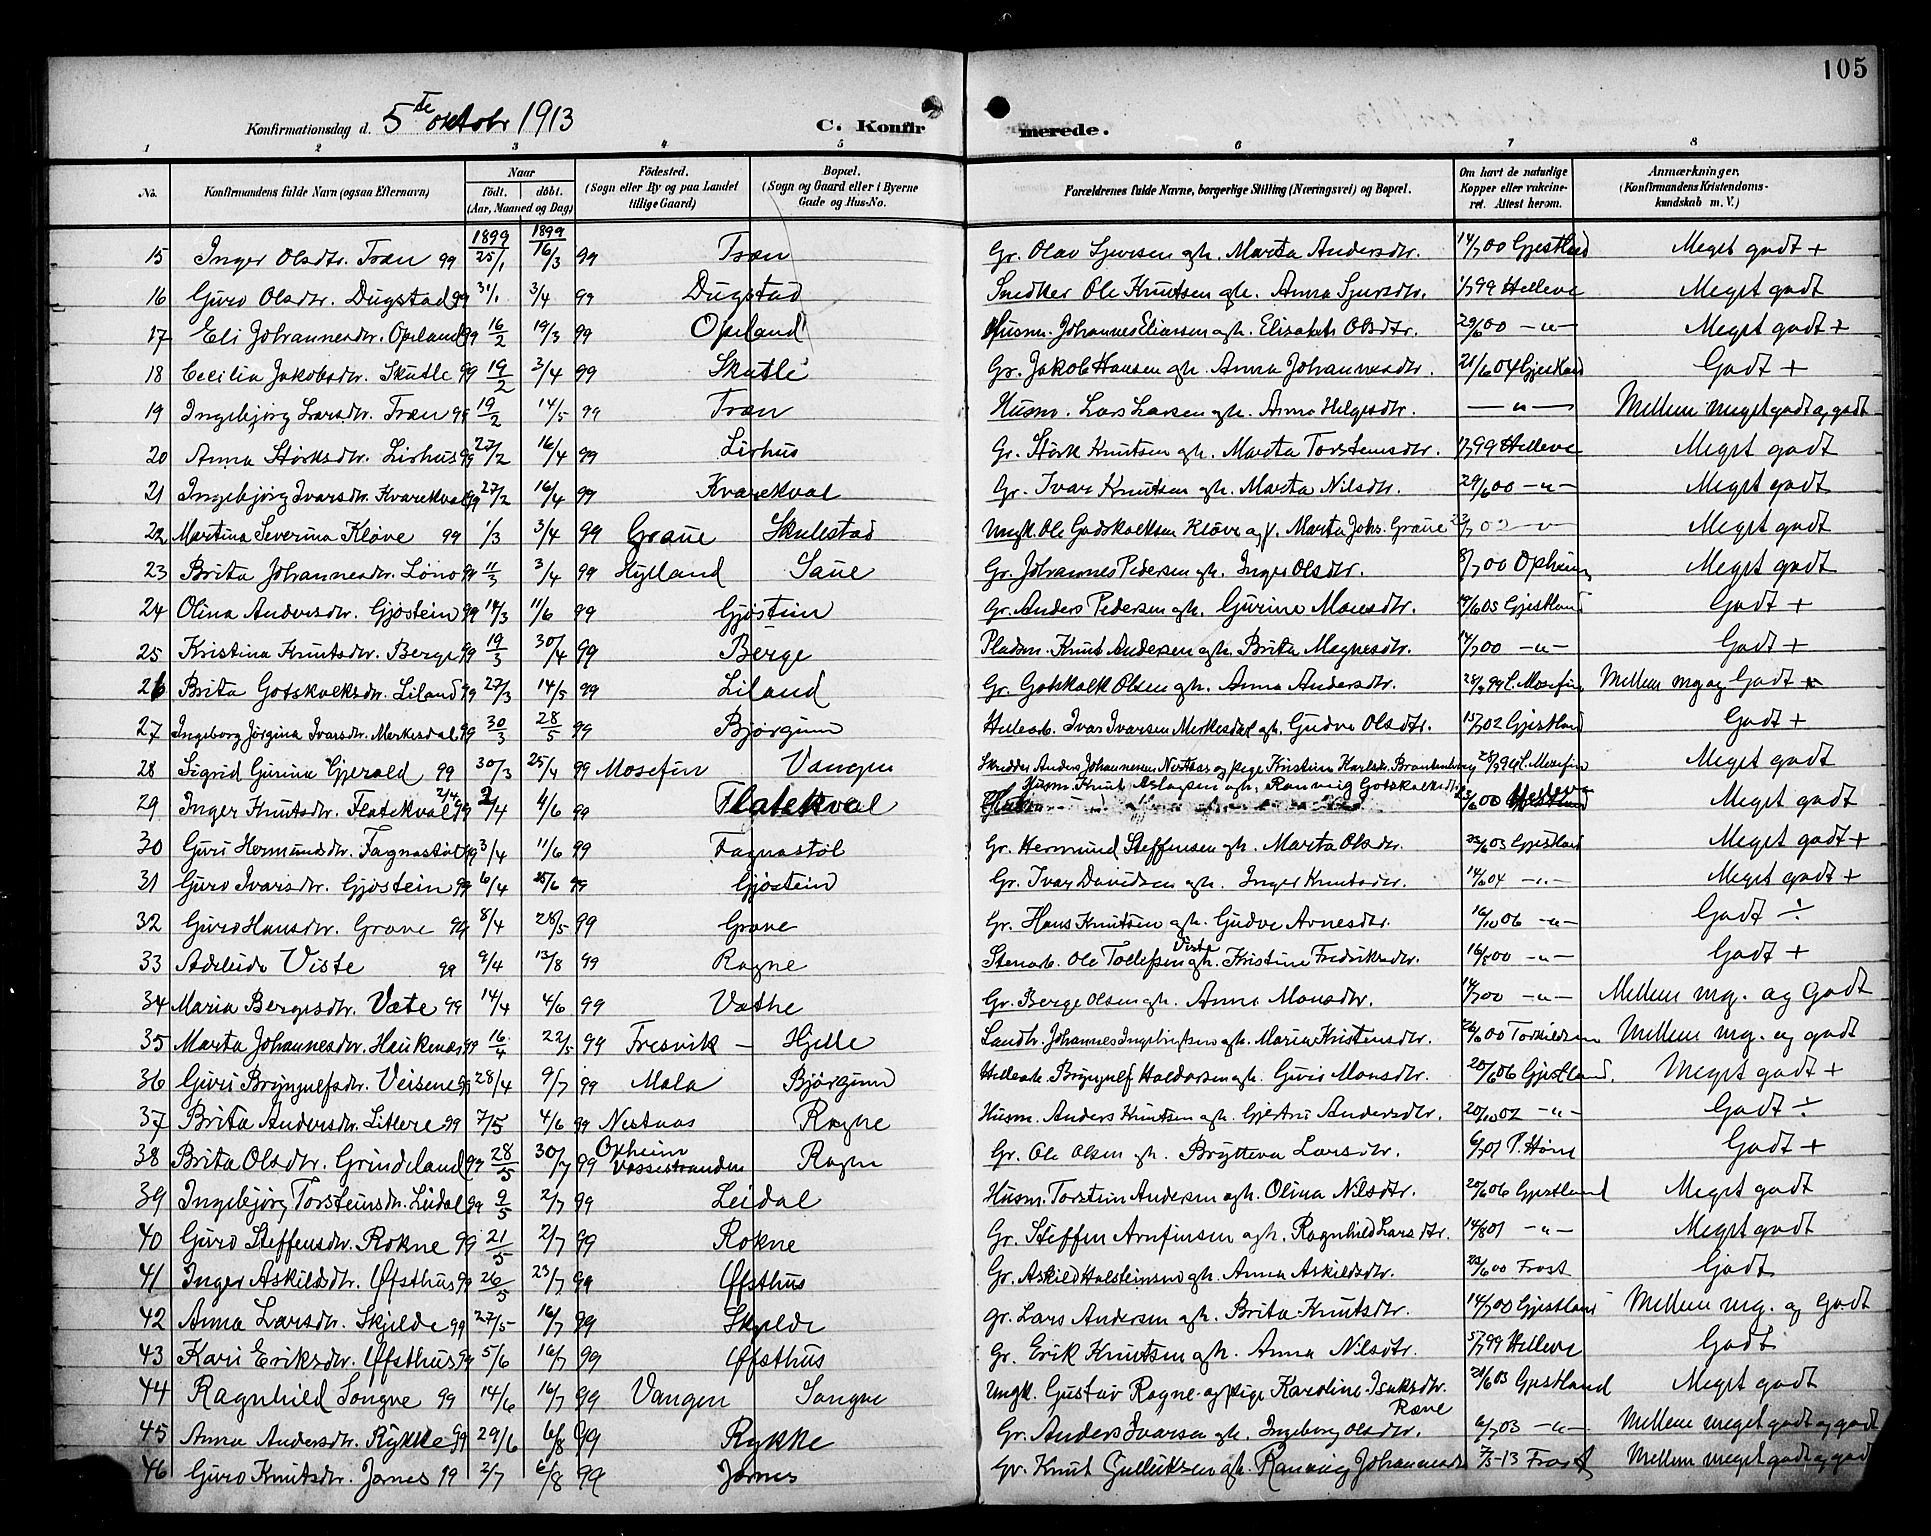 105
Konfirmationsdag d. 5te oktobr 1913 C. Konfirmerede.
1 2 3 4 5 6 7 8
No. Konfirmandens fulde Navn (ogsaa Efternavn) Naar født. døbt. (Aar, Maaned og Dag) Fødested. (Sogn eller By og paa Landet tillige Gaard) Bopæl. (Sogn og Gaard eller i Byerne Gade og Hus-No. Forældrenes fulde Navne, borgerlige Stilling (Næringsvei) og Bopæl. Om havt de naturlige Kopper eller vakcineret. Attest herom. Anmærkninger. (Konfirmandens Kristendomskundskab m. V.)
1899 1899
15 Inger Olsdtr. Træn 99 25/1 16/3 99 Træn Gr. Olav Sjursen og h. Marta Andersdtr. 14/7 00 Gjestland Meget godt +
16 Guro Olsdtr. Dugstad 99 31/1 3/4 99 Dugstad Snedker Ole Knutsen og h. Anna Sjursdtr. 1/7 99 Helleve Meget godt
17 Eli Johannesdtr. Opeland 99 16/2 19/3 99 Opeland Husm. Johannes Eliassen og h. Elisabeth Olsdtr. 29/6 00 -"- Meget godt +
18 Cecilia Jakobsdtr. Skutle 99 19/2 3/4 99 Skutle Gr. Jakob Hansen og h. Anna Johannesdtr. 21/6 04 Gjestland Godt +
19 Ingebjørg Larsdtr. Træn 99 19/2 14/5 99 Træn Husm. Lars Larsen og h. Anna Helgesdtr. -"- Mellem meget godt og godt
20 Anna Størksdtr. Lirhus 99 27/2 16/4 99 Lirhus Gr. Størk Knutsen og h. Marta Torsteinsdtr. 1/7 99 Helleve Meget godt
21 Ingebjørg Ivarsdtr. Kvarekval 99 27/2 16/4 99 Kvarekval Gr. Ivar Knutsen og h. Marta Nilsdtr. 29/6 00 -"- Meget godt
22 Martina Severina Kløve 99 1/3 3/4 99 Graue Skulestad Ungk. Ole Godskalksen Kløve og p. Marta Johs. Graue Meget godt
23 Brita Johannesdtr. Løno 99 11/3 3/4 99 Hylland Saue Gr. Johannes Pedersen og h. Inger Olsdtr. 8/7 00 Opheim Meget godt
24 Olina Andersdtr. Gjøstein 99 14/3 11/6 99 Gjøstein Gr. Anders Pedersen og h. Gurine Monsdtr. 19/6 05 Gjestland Godt +
25 Kristina Knutsdtr. Berge 99 19/3 30/4 99 Berge Pladsm. Knut Andersen og h. Brita Magnesdtr. 14/7 00 -"- Godt +
26 Brita Gotskalksdtr. Liland 99 27/3 14/5 99 Liland Gr. Gotskalk Olsen og h. Anna Andersdtr. L. Mosefin Mellem mg og Godt +
27 Ingeborg Jørgina Ivarsdtr. Merkesdal 99 30/3 28/5 99 Bjørgum Ivar Ivarsen Merkesdal og h. Gudve Olsdtr. 15/7 02 Gjestland Godt +
28 Sigrid Gurina Gjerald 99 30/3 25/4 99 Mosefin Vangen Skrædder Anders Johannesen Nestaas og pige Kristine Karlsdr. Brantenberg L. Mosefin Meget godt
29 Inger Knutsdtr. Flatekval 2/4 99 2/4 4/6 99 Flatekval Husm. Knut Aslaksen og h. Rannveig Gotskalksdtr. Meget godt
30 Guri Hermundsdtr. Fagnastøl 99 3/4 11/6 99 Fagnastøl Gr. Hermund Steffensen og h. Marta Olsdtr. 25/6 03 Gjestland Meget godt +
31 Guro Ivarsdtr. Gjøstein 99 6/4 25/6 99 Gjøstein Gr. Ivar Davidsen og h. Inger Knutsdtr. 14/6 04 -"- Meget godt +
32 Guro Hansdtr. Grove 99 8/4 28/5 99 Grove Gr. Hans Knutsen og h. Gudve Arnesdtr. 16/10 06 -"- Godt ÷
33 Adeleide Viste 99 9/4 13/8 99 Rogne Stenarb. Ole Tollefsen Viste og h. Kristine Fredriksdtr. 16/8 00 -"- Godt +
34 Maria Bergesdtr. Væte 99 14/4 4/6 99 Væthe Gr. Berge Olsen og h. Anna Monsdtr. 14/7 00 -"- Mellem mg. og Godt
35 Marta Johannesdtr. Haukenæs 99 16/4 22/5 99 Fresvik - Hjelle Landh. Johannes Ingebrigtsen og h. Maria Kristensdtr. 26/6 00 Torkildsen Mellem mg. og godt
36 Guri Brynjulfsdtr. Veisene 99 28/4 9/7 99 Mala Bjørgum Brynjulf Haldorsen og h. Guri Monsdtr. 20/6 06 Gjestland. Meget godt +
37 Brita Andersdtr. Litlere 99 7/5 4/6 99 Nestaas Rogne Husm. Anders Knutsen og h. Gjertrui Andersdtr. 20/10 02 -"- Godt ÷
38 Brita Olsdtr. Grindeland 99 28/5 30/7 99 Opheim Vossestranden Rogne Gr. Ole Olsen og h. Brytteva Larsdtr. 6/7 07 P. Høne Godt +
39 Ingebjørg Torsteinsdtr. Leidal 99 9/5 2/7 99 Leidal Husm. Torstein Andersen og h. Olina Nilsdtr. 20/6 06 Gjestland Meget godt
40 Guro Steffensdtr. Rokne 99 21/5 2/7 99 Rokne Gr. Steffen Arnfinsen og h. Ragnhild Larsdtr. 14/8 01 -"- Meget godt
41 Inger Askildsdtr. Øfsthus 99 26/5 23/7 99 Øfsthus Gr. Askild Holsteinsen og h. Anna Askildsdtr. 23/6 00 Frost Godt
42 Anna Larsdtr. Skjelde 99 27/5 16/7 99 Skjelde Gr. Lars Andersen og h. Brita Knutsdtr. 14/7 00 Gjestland Mellem mg. og Godt
43 Kari Eriksdtr. Øfsthus 99 5/6 16/7 99 Øfsthus Gr. Erik Knutsen og h. Anna Nilsdtr. 5/7 99 Helleve Godt
44 Ragnhild Songve 99 14/6 16/7 99 Vangen Songve Ungk. Gustav Rogne og pige Karoline Isaksdtr. Røve 26/6 03 Gjestland Meget godt
45 Anna Andersdtr. Rykke 99 29/6 6/8 99 Rykke Gr. Anders Ivarsen og h. Ingeborg Olsdtr. 6/7 03 -"- Mellem meget godt og godt
46 Guro Knutsdtr. Jarnes 99 2/7 6/8 99 Jarnes Gr. Knut Gulleiksen og h. Rannveig Johannesdtr 7/5-13 Frost Mellem meget godt og god